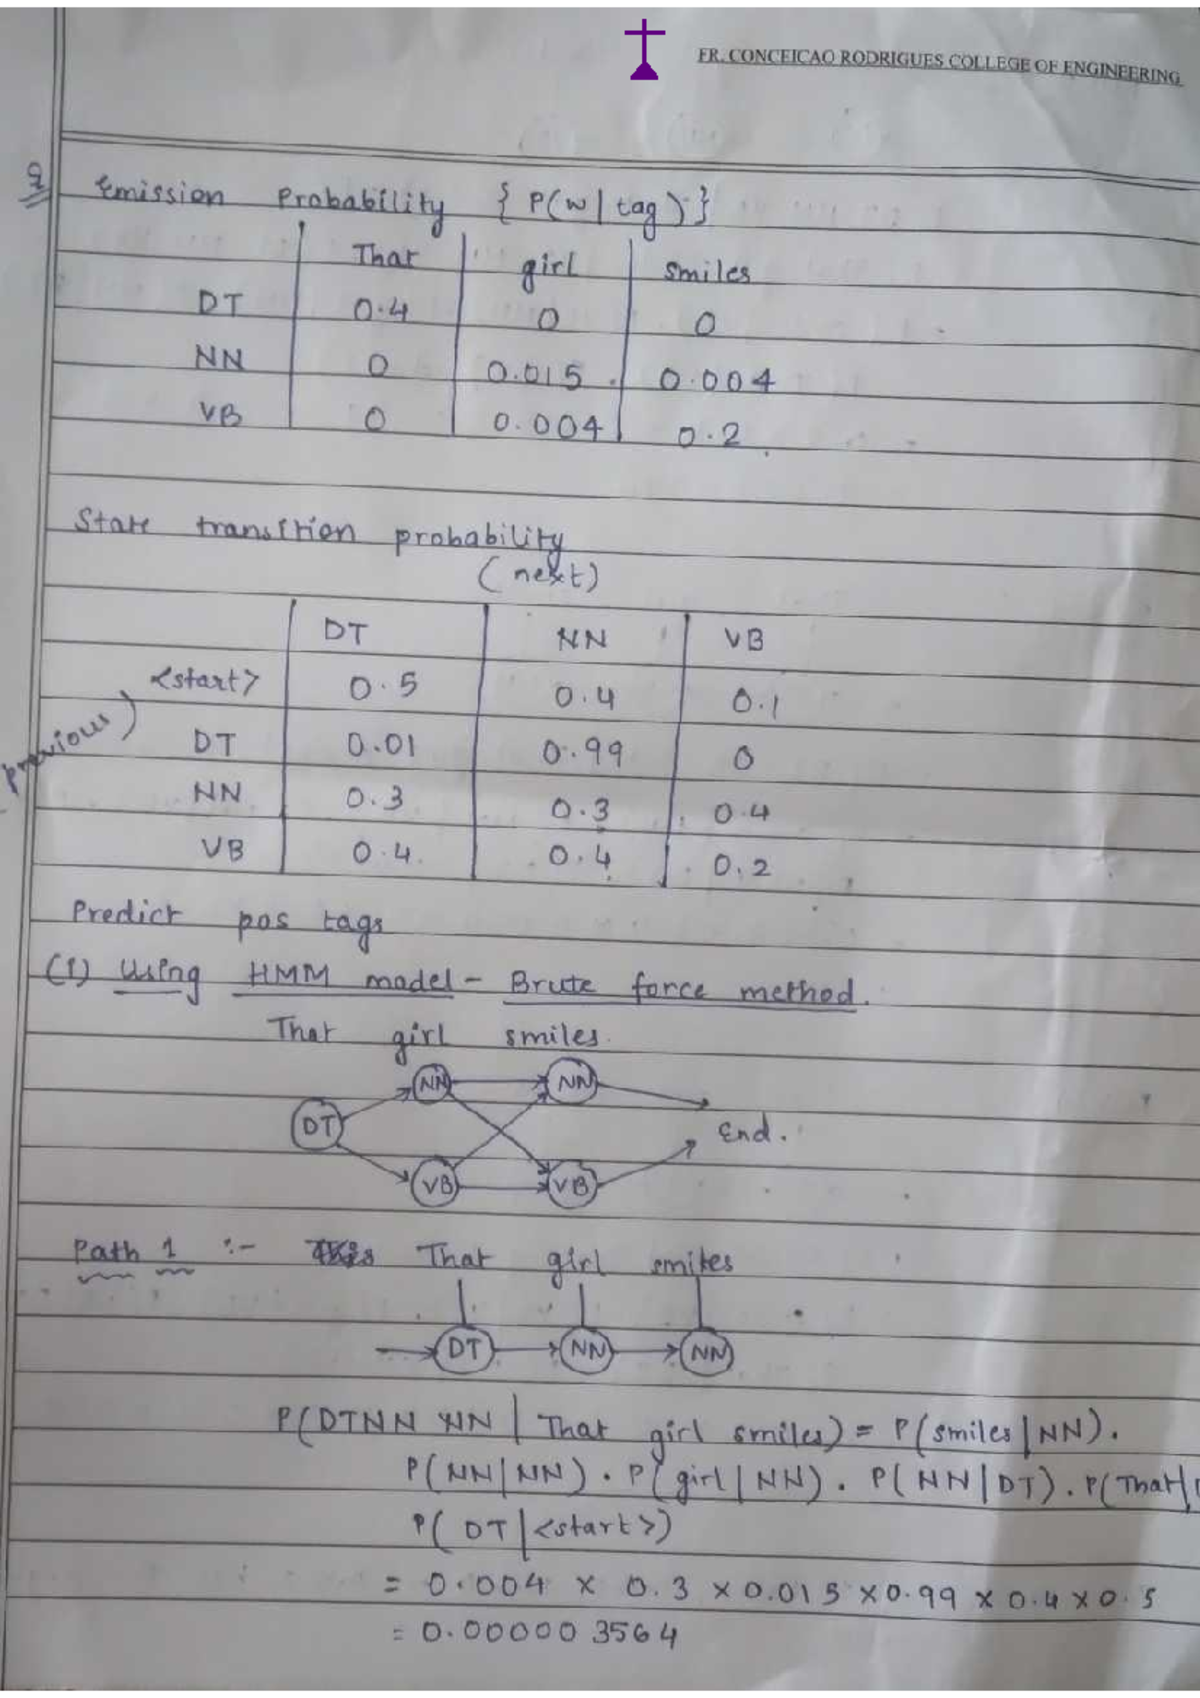 FR. CONCEICAO RODRIGUES COLLEGE OF ENGINEERING
Q Emission Probability { P(w | tag) }
That girl smiles
DT 0.4 0 0
NN 0 0.015 0.004
VB 0 0.004 0.2
State transition probability
(next)
DT NN VB
<start> 0.5 0.4 0.1
previous)
DT 0.01 0.99 0
NN 0.3 0.3 0.4
VB 0.4 0.4 0.2
Predict pos tags
(1) Using HMM model - Brute force method.
That girl smiles.
NN NN
DT End.
VB VB
Path 1 :- That girl smiles
DT NN NN
P(DTNN NN | That girl smiles) = P(smiles | NN).
P(NN | NN) . P(girl | NN) . P(NN | DT) . P(That |
P( DT | <start>)
= 0.004 x 0.3 x 0.015 x 0.99 x 0.4 x 0.5
= 0.000003564